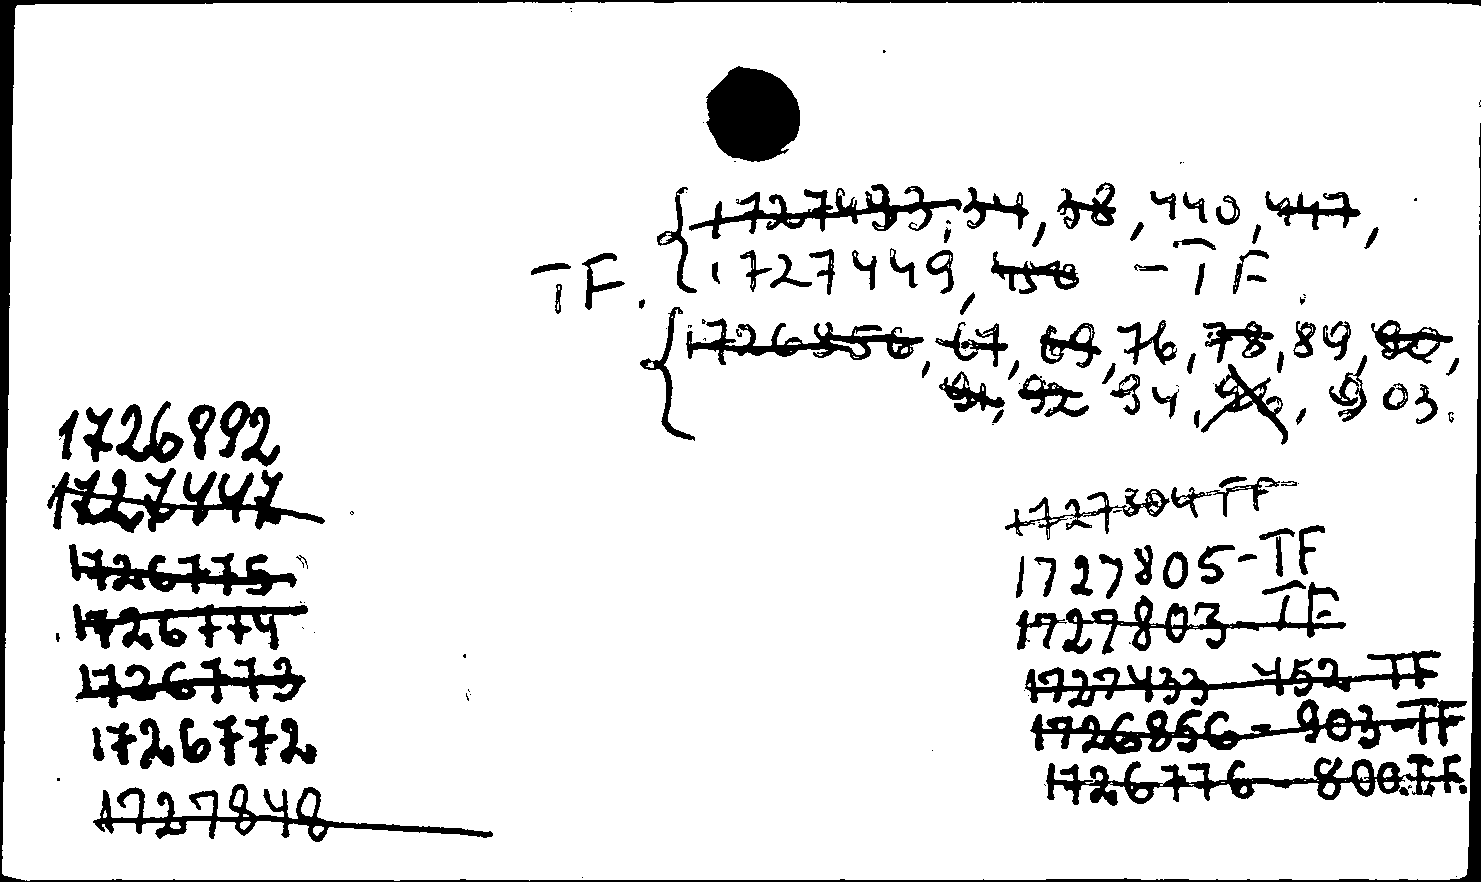 1727433, 34, 38, 440, 447,
TF. 1727449, 450 - TF
1726856, 67, 69, 76, 78, 89, 90,
91, 92 94, 96, 903.
1726892
1727447
1726775
1726774
1726773
1726772
1727848
1727804 TF
1727805-TF
1727803-TF
1727433-452 TF
1726856-903-TF
1726776-800.T.F.